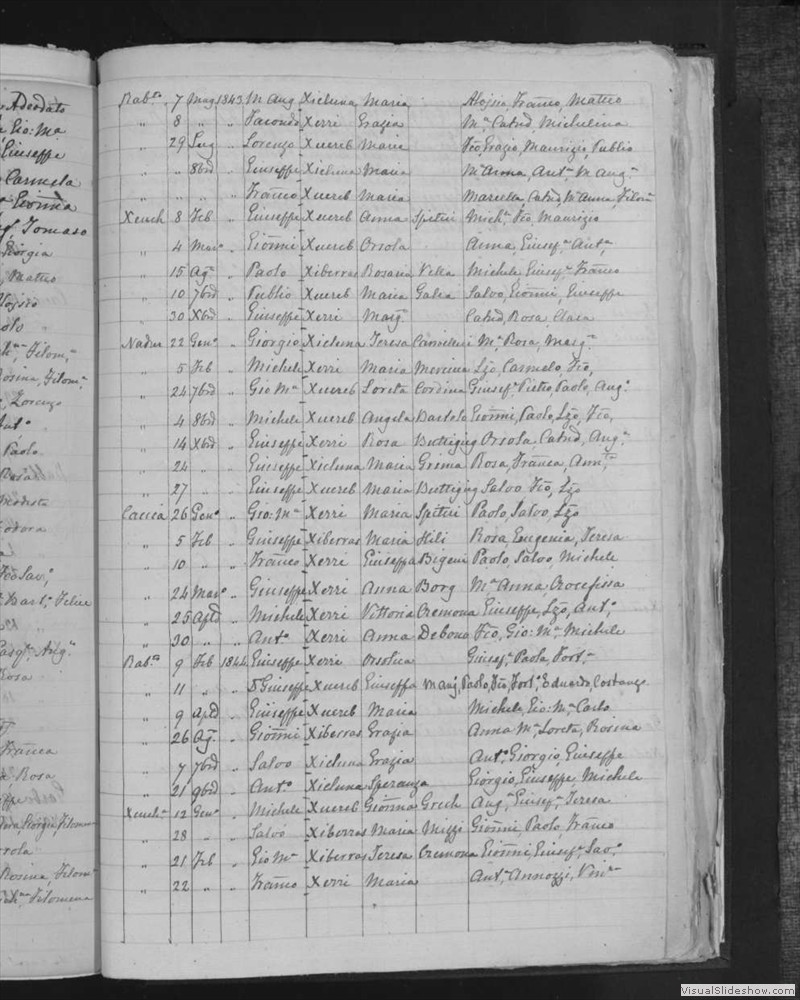 Adeodato
Gio: Ma
Giuseppe
Carmela
Giorgia
Matteo
Aloisio
Lorenzo
Paolo
Rosa
Modesta
Teodora
Franca
Rosa
Filomena
Rabto 7 Mag 1843 M Aug Xicluna Maria Aloisio, Franco, Matteo
" 8 " " Facondo Xerri Grazia Ma Catnd, Michelina
" 29 Lug " Lorenzo Xuereb Maria Fco, Grazio, Maurizio, Publio
" " 8bre " Giuseppe Xicluna Maria Ma Anna, Anta M Auga
" " " " Franco Xuereb Maria Catnd, Ma Anna, Filoma
Xeuch 8 Feb " Giuseppe Xuereb Anna Spiteri Michl, Fco, Maurizio
" 4 Maro " Gionni Xuereb Orsola Anna, Giusepa Anta
" 15 Ago " Paolo Xiberras Rosaria Vella Michele, Giusepe, Franco
" 10 7bre " Publio Xuereb Maria Galia Salvo, Gionni, Giuseppe
" 30 Xbre " Giuseppe Xerri Marga Catnd, Rosa, Clara
Nadur 22 Geno " Giorgio Xicluna Teresa Camilleri Ma Rosa, Marga
" 5 Feb " Michele Xerri Maria Lzo, Carmelo, Fco,
" 24 7bre " Gio Ma Xuereb Loreta Cordina Giusepe, Pietro, Paolo, Augo
" 4 8bre " Michele Xuereb Angela Bartolo Gionni, Paolo, Lzo, Fco,
" 14 Xbre " Giuseppe Xerri Rosa Buttigieg Orsola, Catnd, Auga
" 24 " " Giuseppe Xicluna Maria Grima Rosa, Franca,
" 27 " " Giuseppe Xuereb Maria Buttigieg Salvo, Fco, Lzo
Caccia 26 Geno " Gio: Ma Xerri Maria Spiteri Paolo, Salvo, Lzo
" 5 Feb " Giuseppe Xiberras Maria Hili Rosa, Eugenia, Teresa
" 10 " " Franco Xerri Giuseppa Bigeni Paolo, Salvo, Michele
" 24 Maro " Giuseppe Xerri Anna Borg Ma Anna, Crocefissa
" 25 Aple " Michele Xerri Vittoria Cremona Giuseppe, Lzo, Anto
" 30 " " Anto Xerri Anna Debono Fco, Gio: Ma, Michele
Rabto 9 Feb 1844 Giuseppe Xerri Orsolica Giusepe, Paola, Forta
" 11 " " D Giuseppe Xuereb Giuseppa Paolo, Fco, Forto, Eduardo, Costanza
" 9 Aple " Giuseppe Xuereb Maria Michele, Gio: Ma, Carlo
" 26 Ago " Gionni Xiberras Grazia Anna Ma, Loreta, Rosina
" 7 7bre " Salvo Xicluna Grazia Anto, Giorgio, Giuseppe
" 21 9bre " Anto Xicluna Speranza Giorgio, Giuseppe, Michele
Xeuch 12 Geno " Michele Xuereb Gionna Grech Auga, Giusepa, Teresa
" 28 " " Salvo Xiberras Maria Mizzi Gionni, Paolo, Franco
" 21 Feb " Gio Ma Xiberras Teresa Cremona Gionni, Giusepe, Savo
" 22 " " Franco Xerri Maria
VisualSlideshow.com